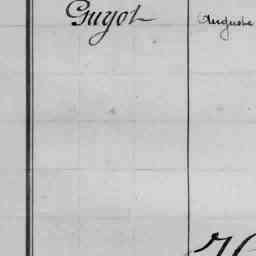 Guyot Auguste